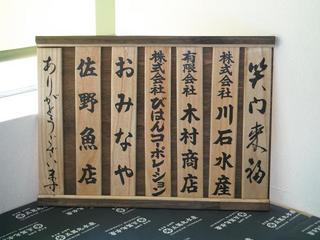 笑門来福
株式会社 川石水産
有限会社 木村商店
株式会社 びはんコーポレーション
おみなや
佐野魚店
ありがとうございます